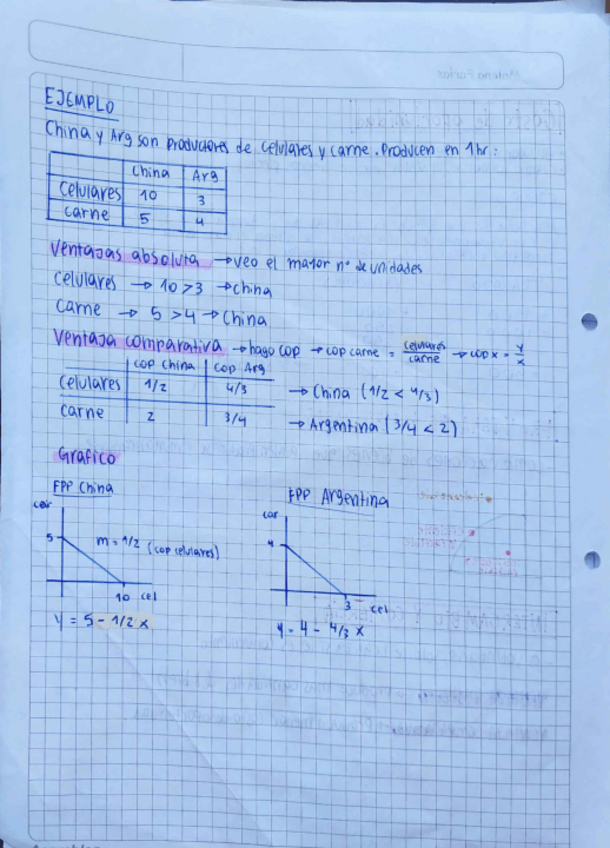 EJEMPLO
China y Arg son productores de celulares y carne. Producen en 1hr:
China Arg
Celulares 10 3
carne 5 4
Ventajas absoluta → veo el mayor n° de unidades
Celulares → 10 > 3 → China
Carne → 5 > 4 → China
Ventaja comparativa → hago cop → cop carne = celulares/carne → cop x = y/x
cop China cop Arg
Celulares 1/2 4/3 → China (1/2 < 4/3)
Carne 2 3/4 → Argentina (3/4 < 2)
Grafico
FPP China
FPP Argentina
car
5
m = 1/2 (cop celulares)
10 cel
y = 5 - 1/2 x
car
4
3 cel
y = 4 - 4/3 x